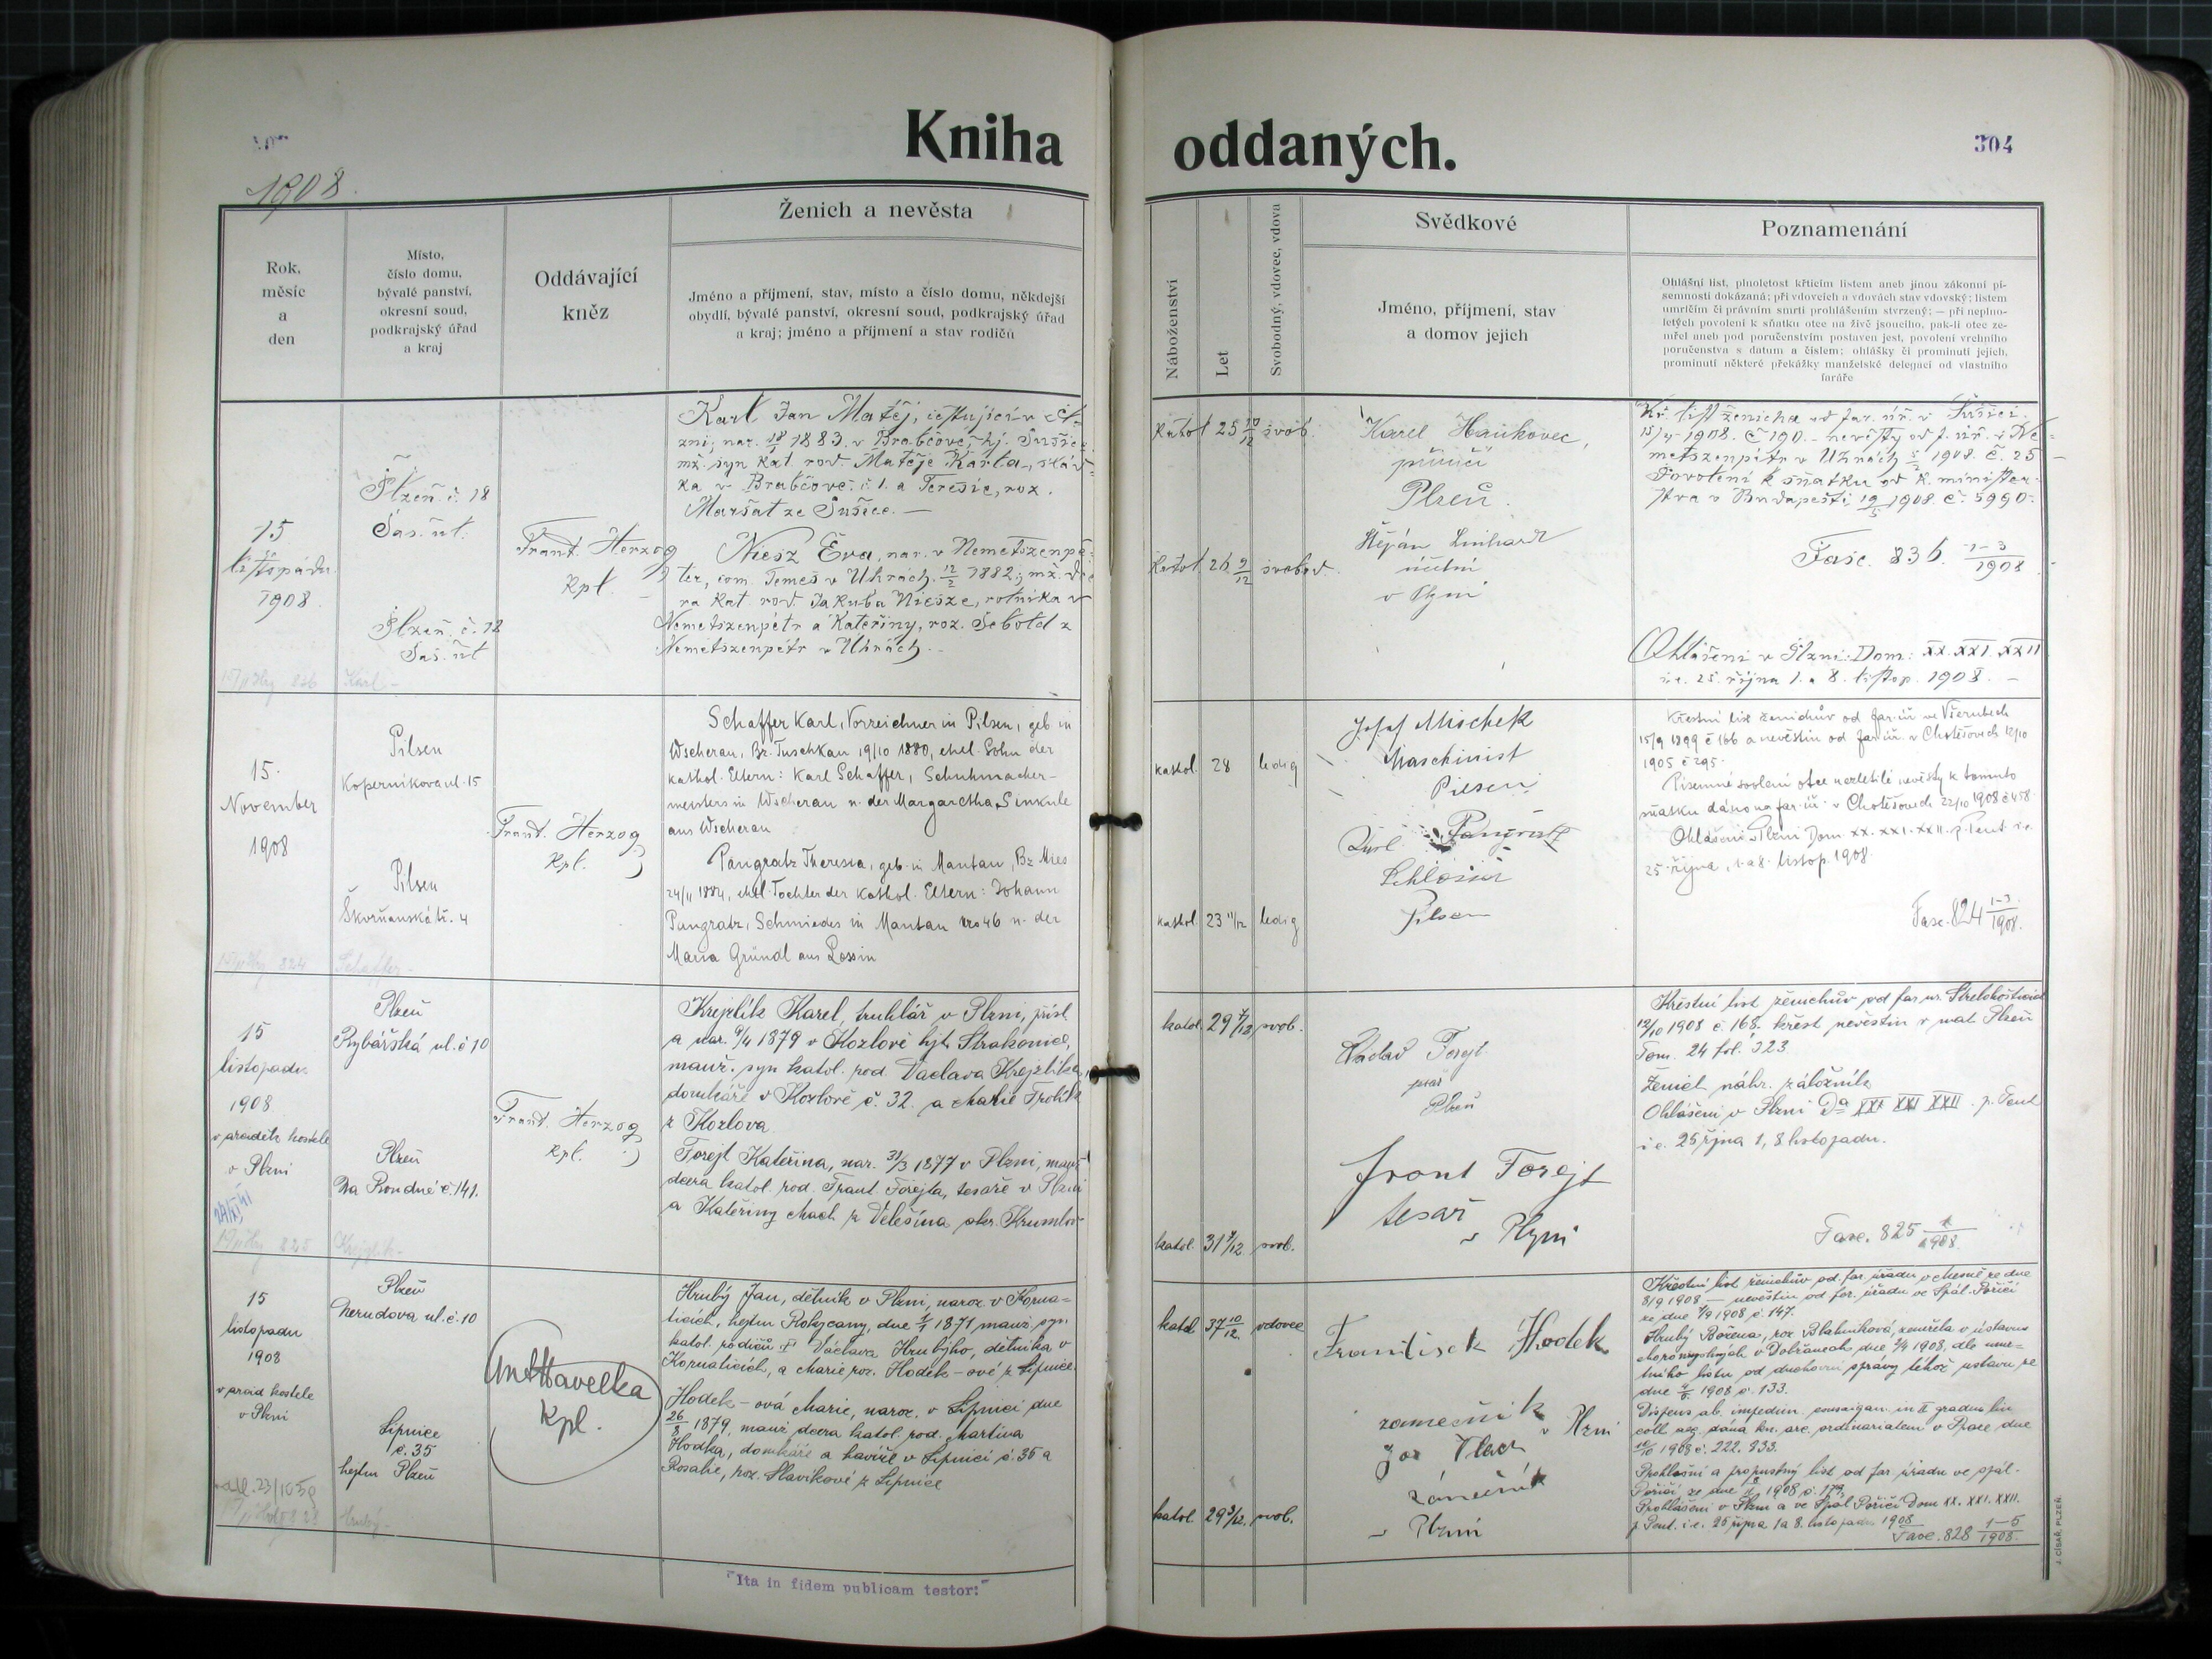 Kniha oddaných.
304
1908.
Rok,
měsíc
a
den
Místo,
číslo domu,
bývalé panství,
okresní soud,
podkrajský úřad
a kraj
Oddávající
kněz
Ženich a nevěsta
Jméno a příjmení, stav, místo a číslo domu, někdejší
obydlí, bývalé panství, okresní soud, podkrajský úřad
a kraj; jméno a příjmení a stav rodičů
Náboženství
Let
Svobodný, vdovec, vdova
Svědkové
Jméno, příjmení, stav
a domov jejich
Poznamenání
Ohlášní list, plnoletost křticím listem aneb jinou zákonní pí-
semností dokázaná; při vdovcích a vdovách stav vdovský; listem
umrlčím či právním smrti prohlášením stvrzený; — při neplno-
letých povolení k sňatku otce na živě jsoucího, pak-li otec ze-
mřel aneb pod poručenstvím postaven jest, povolení vrchního
poručenstva s datum a číslem; ohlášky či prominutí jejich,
prominutí některé překážky manželské delegací od vlastního
faráře
15
listopadu
1908.
Plzeň č. 18
Sas. ul.
Plzeň č. 18
Sas. ul
Frant. Herzog
Kpl.
Karl Jan Matěj,
nar. 1883 v Brabčově, hj. Sušice
mž. syn kat. rod. Matěje Karla,
ka v Brabčově č. 1. a Terezie, roz.
Maršat ze Sušice. —
Niesz Eva, nar. v Nemetszenpé-
ter, com. Temes v Uhrách 1882, mž. dce
ra kat. rod. Jakuba Niesze, rolníka v
Nemetszenpétr a Kateřiny, roz. Sebold z
Nemetszenpétr v Uhrách. —
katol 25 10/12 svob.
katol 26 9/12 svobod.
Karel
Plzeň.
Štěpán Linhart
v Plzni
Kř. list ženicha od far. úř. v Sušici
1908. č 190. — nevěsty od f. úř. v Ne-
metszenpétr v Uhrách 1908. č. 25 —
Povolení k sňatku od k. minister-
stva v Budapešti 19/5 1908 č. 5990.
Fasc. 836 1-3/1908
Ohlášeni v Plzni: Dom: XX. XXI. XXII
i. e. 25. října 1. a 8. listop. 1908. —
15.
November
1908
Pilsen
Koperníkova ul. 15
Pilsen
Škvrňanská tř. 4
Frant. Herzog
Kpl.
Schaffer Karl, Vorzeichner in Pilsen, geb. in
Wscherau, Bz. Tuschkau 19/10 1880, ehel. Sohn der
kathol. Eltern: Karl Schaffer, Schuhmacher-
meisters in Wscherau u. der Margaretha Sinkule
aus Wscherau
Pangratz Theresia, geb. in Mantau, Bz Mies
24/11 1884, ehel. Tochter der kathol. Eltern: Johann
Pangratz, Schmiedes in Mantau Nro 46 u. der
Maria Gründl aus Lossin
kathol. 28 ledig
kathol. 23 11/12 ledig
Josef Mischek
Maschinist
Pilsen
Karl Pangratz
Schlosser
Pilsen
Křestní list ženichův od far. úř. ve Všerubech
15/9 1899 č 166 a nevěstin od far. úř. v Chotěšovech 12/10
1905 č 295.
Písemné svolení otce nezletilé nevěsty k tomuto
sňatku dáno na far. úř. v Chotěšovech 22/10 1908 č 458.
Ohlášeni v Plzni Dom. XX. XXI. XXII. p. Pent. i. e.
25. října, 1. a 8. listop. 1908.
Fasc. 824 1-3/1908.
15
listopadu
1908.
v arciděk. kostele
v Plzni
Plzeň
Rybářská ul. č 10
Plzeň
Na Rondně č. 141.
Frant. Herzog
Kpl.
Krejzlík Karel, truhlář v Plzni, přísl.
a nar. 9/4 1879 v Kozlově hjt. Strakonice,
manž. syn katol. rod. Václava Krejzlíka,
domkáře v Kozlově č. 32. a Marie Frolík
z Kozlova
Forejt Kateřina, nar. 31/3 1877 v Plzni, manž.
dcera katol. rod. Frant. Forejta, tesaře v Plzni
a Kateřiny Mach z Velešína okr. Krumlov
katol. 29 7/12 svob.
katol. 31 7/12 svob.
Václav Forejt
Plzeň
Frant Forejt
tesař
v Plzni
Křestní list ženichův od far. úř. Střelohoštice
12/10 1908 č. 168. křest nevěstin v mat. Plzeň
Tom. 24 fol. 323.
Ženich náhr. záložník
Ohlášeni v Plzni Dom XX XXI XXII. p. Pent
i. e. 25 října 1, 8 listopadu.
Fasc. 825 1/1908
15
listopadu
1908
v arcid. kostele
v Plzni
Plzeň
Nerudova ul. č. 10
Lipnice
č. 35
hejtm Plzeň
Ant Havelka
Kpl.
Hrubý Jan, dělník v Plzni, naroz. v Korna-
ticích, hejtm Rokycany, dne 1871 manž. syn
katol. rodičů † Václava Hrubýho, dělníka v
Kornaticích, a Marie roz. Hodek-ové z Lipnice
Hodek-ová Marie, naroz. v Lipnici dne
26/8 1879, manž. dcera katol. rod. Martina
Hodka, domkáře a havíře v Lipnici č. 35 a
Rosalie, roz. Slavíkové z Lipnice
katol. 37 10/12. vdovec
katol. 29 3/12. svob.
František Hodek
zámečník v Plzni
Jos Vlach
zámečník
v Plzni
Křestní list ženichův od far. úřadu v ze dne
8/9 1908 — nevěstin od far. úřadu ve Spál. Poříčí
ze dne 1908 č. 147.
Hrubý Božena, roz. Blahníková, zemřela v ústavu
choromyslných v Dobřanech dne 1908, dle úmr-
tního listu od duchovní správy téhož ústavu ze
dne 1908 č. 133.
Dispens ab. impedim. consaguin. in II gradu lin
coll. aeq. dána kn. arc. ordinariatem v Praze dne
1908 č. 222. 233.
Prohlašní a propustný list od far. úřadu ve Spál.
Poříčí, ze dne 1908 č. 179.
Prohlášeni v Plzni a ve Spál. Poříčí Dom XX. XXI. XXII.
p. Pent. i. e. 25 října 1 a 8. listopadu 1908
Fasc. 828 1-5/1908.
"Ita in fidem publicam testor:"
J. CÍSAŘ, PLZEŇ.